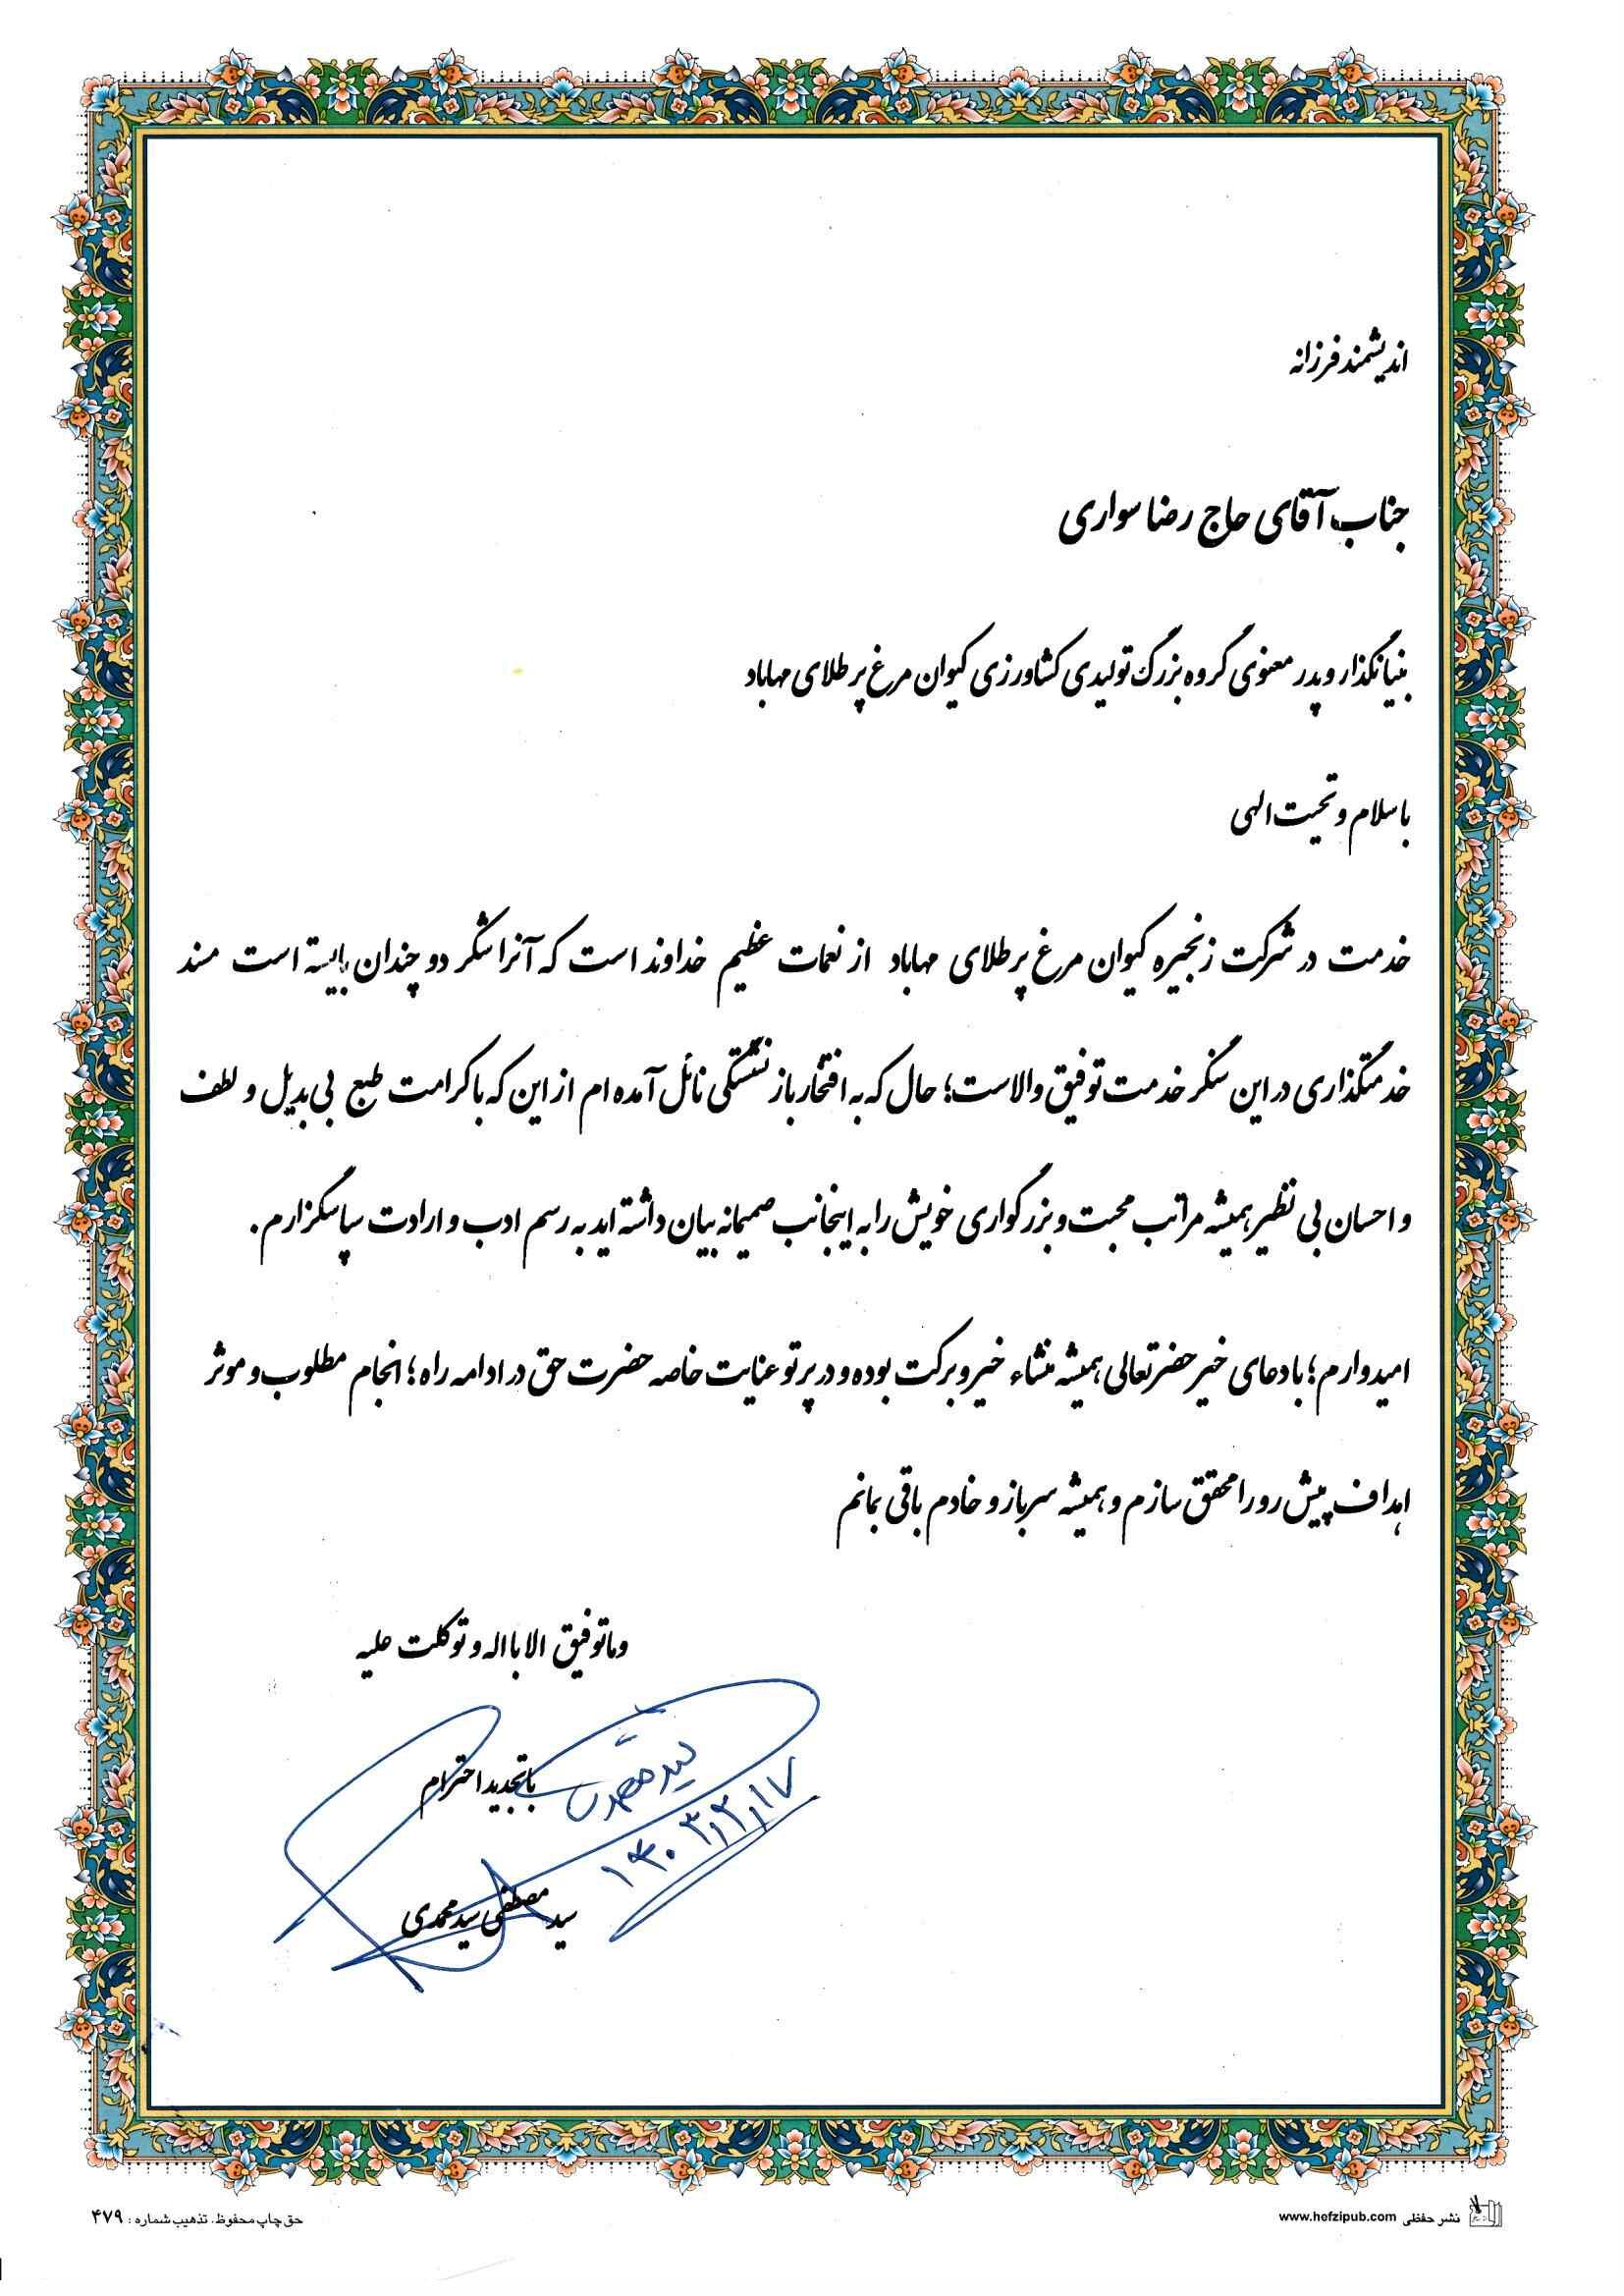 اندیشمند فرزانه
جناب آقای حاج رضا سواری
بنیانگذار و پدر معنوی گروه بزرگ تولیدی کشاورزی کیوان مرغ پر طلای مهاباد
با سلام و تحیت الهی
خدمت در شرکت زنجیره کیوان مرغ پر طلای مهاباد از نعمات عظیم خداوند است که آنرا شکر دو چندان بایسته است مسند
خدمتگذاری در این سنگر خدمت توفیق والاست؛ حال که به افتخار بازنشستگی نائل آمده ام از این که با کرامت طبع بی بدیل و لطف
و احسان بی نظیر همیشه مراتب محبت و بزرگواری خویش را به اینجانب صمیمانه بیان داشته اید به رسم ادب و ارادت سپاسگزارم.
امیدوارم؛ با دعای خیر حضرتعالی همیشه منشاء خیر و برکت بوده و در پرتو عنایت خاصه حضرت حق در ادامه راه؛ انجام مطلوب و موثر
اهداف پیش رو را محقق سازم و همیشه سرباز و خادم باقی بمانم
و ما توفیق الا باالله و توکلت علیه
با تجدید احترام
۱۴۰۳/۲/۱۷
سید مصطفی سید محمدی
نشر حفظی www.hefzipub.com
حق چاپ محفوظ. تذهیب شماره: ۴۷۹